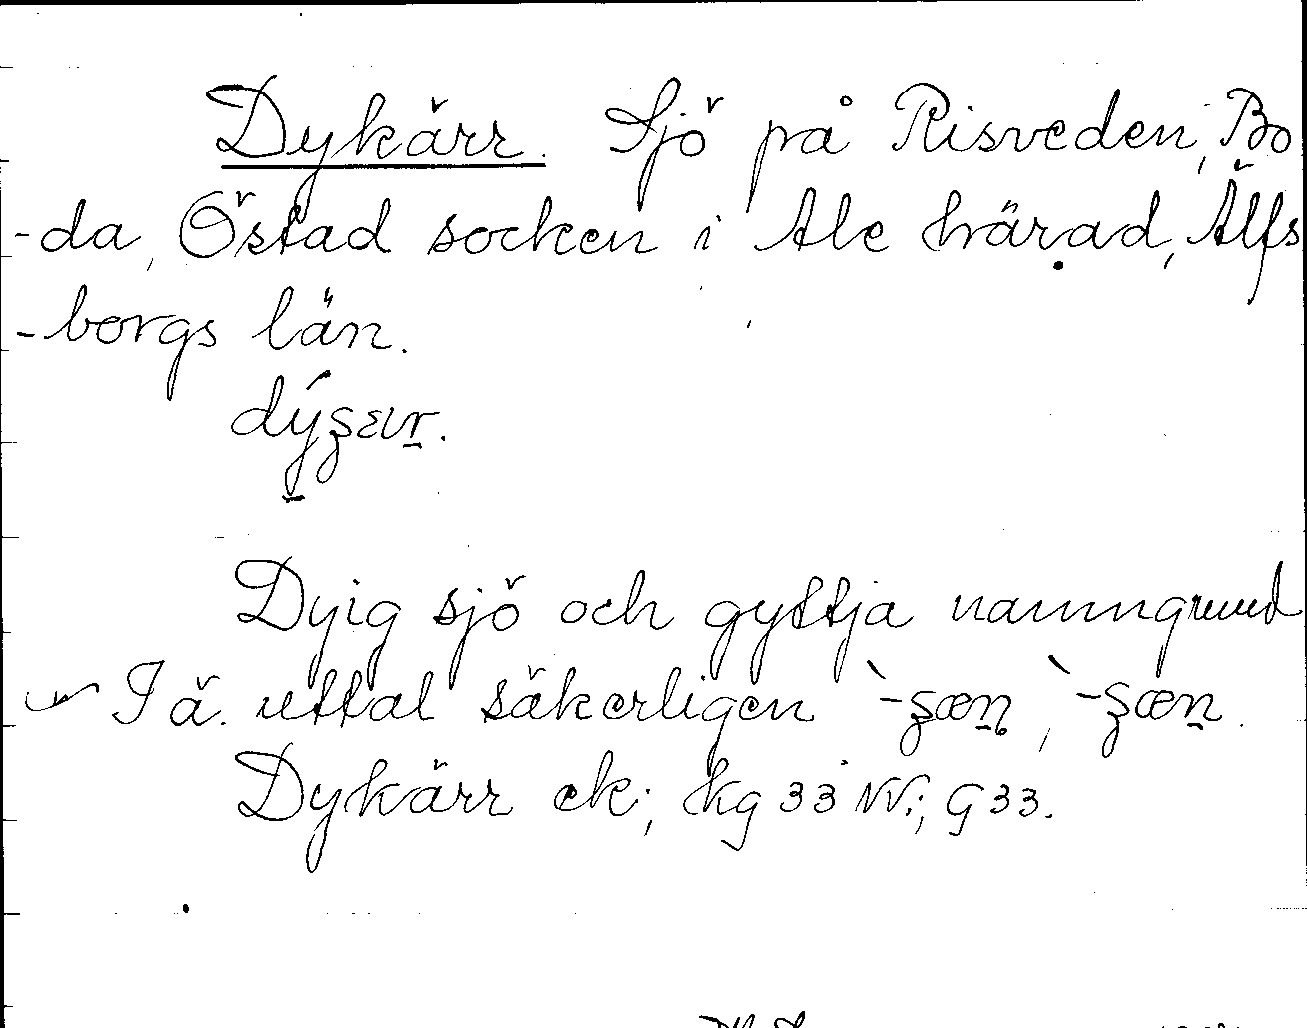 Dykärr. Sjö på Risveden, Bo
-da, Östad socken i Ale härad, Älfs
-borgs län.
Dyig sjö och gyttja namngrund
I ä. uttal säkerligen
Dykärr ek; hg 33 NV.; G 33.